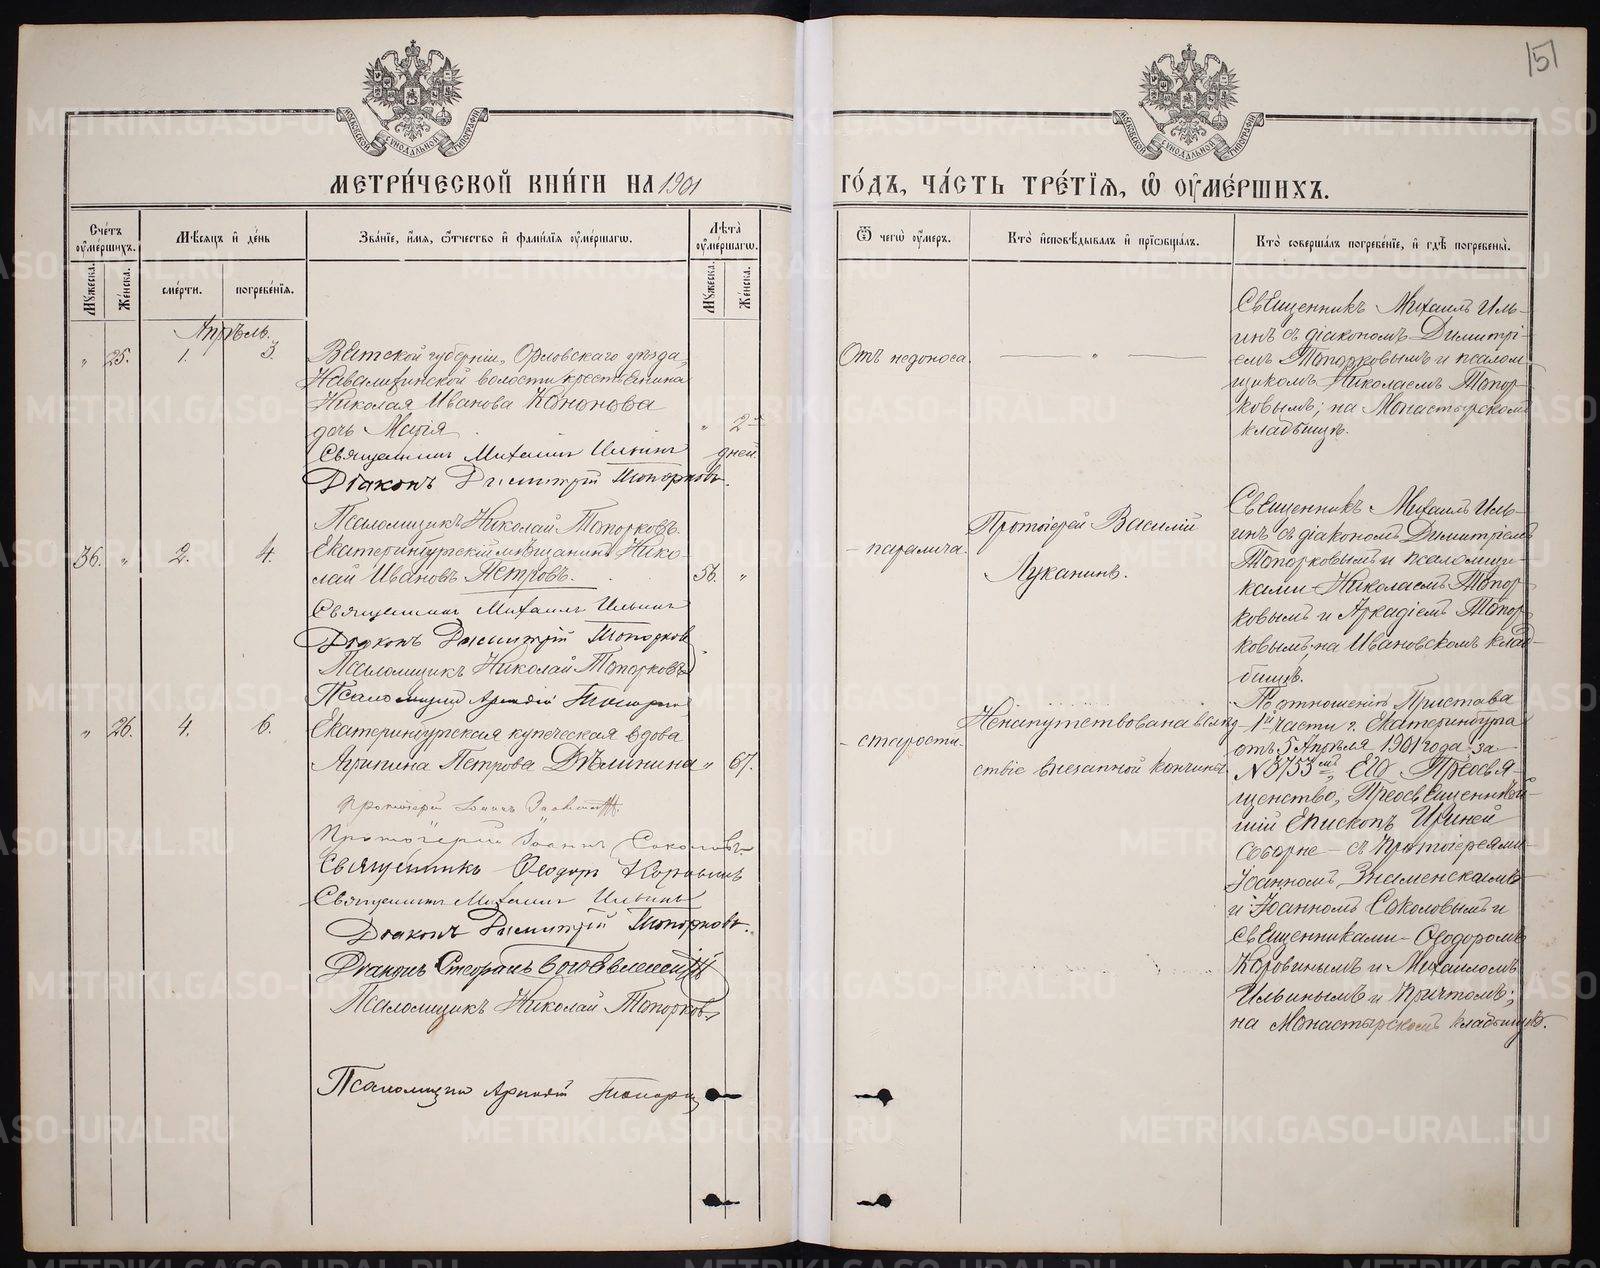 151
МОСКОВСКОЙ СѴНОДАЛЬНОЙ ТИПОГРАФІИ
МОСКОВСКОЙ СѴНОДАЛЬНОЙ ТИПОГРАФІИ
МЕТРИ́ЧЕСКОЙ КНИ́ГИ НА 1901
ГО́ДЪ, ЧА́СТЬ ТРЕ́ТІѦ, Ѽ ОУМЕ́РШИХЪ.
Сче́тъ оумершихъ.
Мѣсяцъ и де́нь
Зва́ніе, и́мя, ѻтчество и фами́лія оуме́ршагѡ.
Лѣта̀ оуме́ршагѡ.
Ѿ чегѡ̀ оу́меръ.
Кто̀ и҆сповѣ́дывалъ и҆ прїѡбща́лъ.
Кто̀ соверша́лъ погребе́ніе, и҆ гдѣ̀ погребены̀.
Мꙋжеска.
Же́нска.
сме́рти.
погребе́нїѧ.
Мꙋжеска.
Же́нска.
Апрѣль.
„ 25. 1. 3.
Вятской губерніи, Орловскаго уѣзда,
волости крестьянина
Николая Иванова Кононова
дочь Марія
„ 2
дней.
Священникъ Михаилъ Ильинъ
Діаконъ Димитрій Топорковъ.
Псаломщикъ Николай Топорковъ.
Отъ недоноса.
„
Священникъ Михаилъ Иль-
инъ съ діакономъ Димитрі-
емъ Топорковымъ и псалом
щикомъ Николаемъ Топор-
ковымъ; на Монастырскомъ
кладбищѣ.
36. „ 2. 4.
Екатеринбургскій мѣщанинъ Нико-
лай Ивановъ Петровъ.
56. „
Священникъ Михаилъ Ильинъ
Діаконъ Димитрій Топорковъ
Псаломщикъ Николай Топорковъ
Псаломщикъ Аркадій Топорковъ
- паралича.
Протоіерей Василій
Луканинъ.
Священникъ Михаилъ Иль-
инъ съ діакономъ Димитріемъ
Топорковымъ и псаломщи-
ками Николаемъ Топор-
ковымъ и Аркадіемъ Топор-
ковымъ; на Ивановскомъ клад-
бищѣ.
„ 26. 4. 6.
Екатеринбургская купеческая вдова
Агрипина Петрова Дѣлинина
„ 67.
Протоіерей Іоаннъ Знаменскій.
Протоіерей Іоаннъ Соколовъ
Священникъ Ѳеодоръ Коровинъ
Священникъ Михаилъ Ильинъ
Діаконъ Димитрій Топорковъ.
Діаконъ Богоявленскій
Псаломщикъ Николай Топорковъ
Псаломщикъ Аркадій Топорковъ
- старости.
Ненапутствована вслѣд
ствіе внезапной кончины.
По отношенію Пристава
1й части г. Екатеринбурга
отъ 5 Апрѣля 1901 года за
№ 3753мъ, Его Преосвя-
щенство, Преосвященнѣй-
шій Епископъ Ириней
соборне - съ Протоіереями
Іоанномъ Знаменскимъ
и Іоанномъ Соколовымъ и
священниками - Ѳеодоромъ
Коровинымъ и Михаиломъ
Ильинымъ и причтомъ;
на Монастырскомъ кладбищѣ.
METRIKI.GASO-URAL.RU